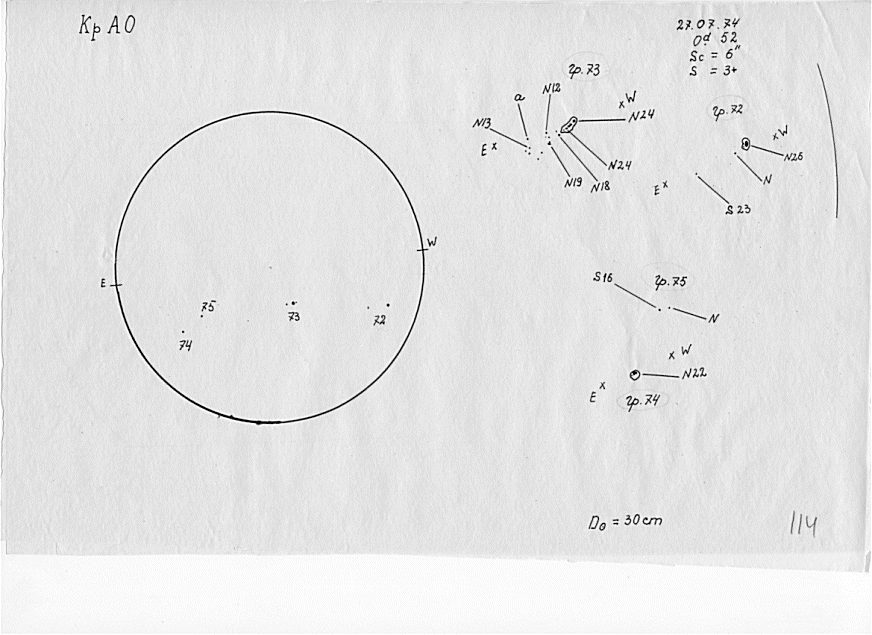 Кр АО
27.07.74
0d 52
Sc = 6"
S = 3+
гр. 73
N12
a
W
N24
N13
E
N24
N19
N18
гр. 72
W
N26
N
E
S 23
W
E
75
73
72
74
S16
гр. 75
N
W
N22
E
гр. 74
D⊙ = 30 cm
114